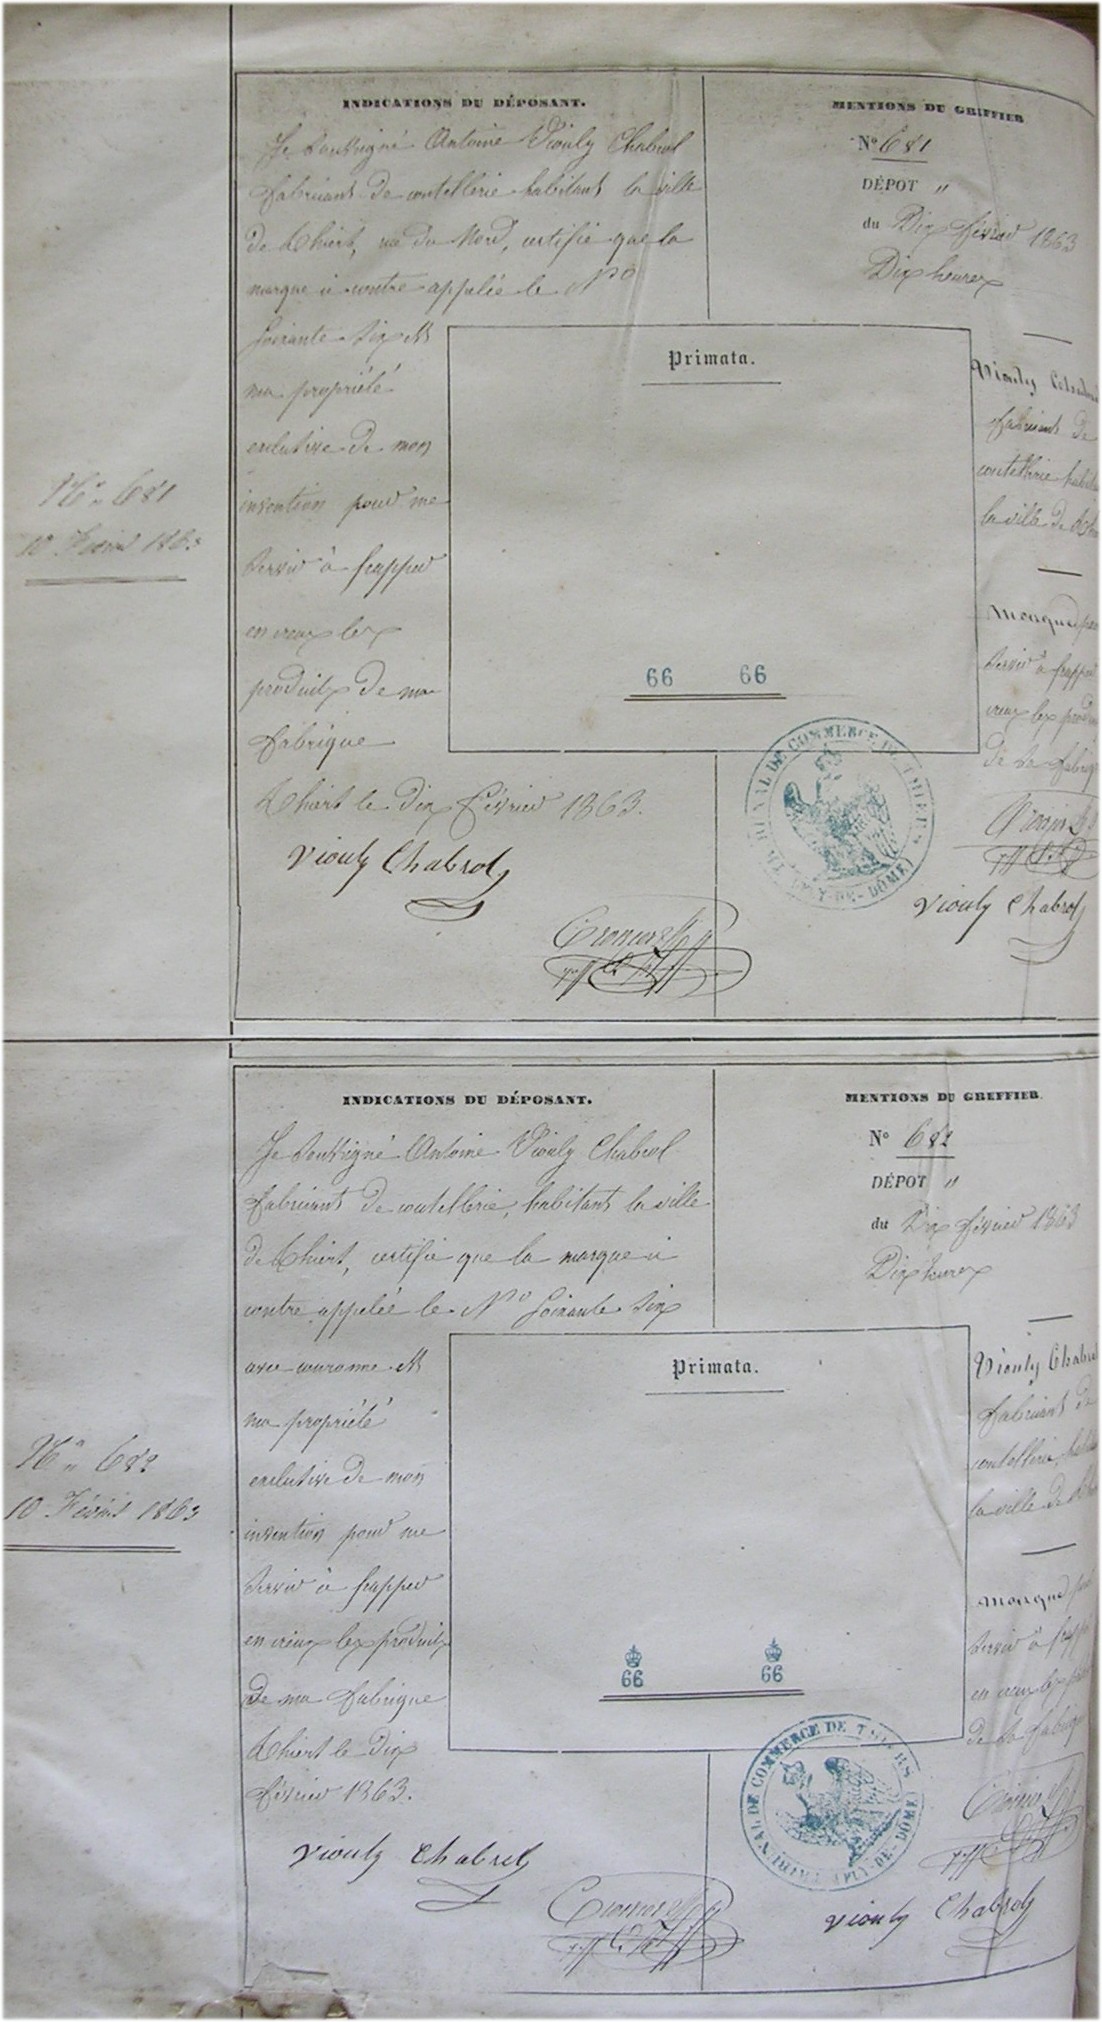 INDICATIONS DU DÉPOSANT.
Je soussigné Antoine Viouly Chabrol
fabricant de coutellerie habitant la ville
de Thiert, rue du Nord, certifie que la
marque ci contre appelée le Nº
Soixante Six est
ma propriété
exclusive de mon
invention pour me
servir à frapper
en creux les
produits de ma
fabrique
Thiert le dix Février 1863.
Viouly Chabrol
MENTIONS DU GREFFIER
Nº 681
DÉPOT "
du Dix février 1863
Dix heures
Viouly Chabrol
fabricant de
coutellerie
la ville de
Marque
servir à
creux les
de sa
Viouly Chabrol
Primata.
66 66
TRIBUNAL DE COMMERCE DE THIERS
(PUY-DE-DÔME)
Nº 681
10 Février 1863
INDICATIONS DU DÉPOSANT.
Je soussigné Antoine Viouly Chabrol
fabricant de coutellerie, habitant la ville
de Thiert, certifie que la marque ci
contre appelée le Nº Soixante Six
avec couronne est
ma propriété
exclusive de mon
invention pour me
servir à frapper
en creux les produits
de ma fabrique
Thiert le dix
février 1863.
Viouly Chabrol
MENTIONS DU GREFFIER.
Nº 682
DÉPOT "
du Dix février 1863
Dix heures
Viouly Chabrol
fabricant de
coutellerie,
la ville de
Marque
servir à
en creux les
de sa
Viouly Chabrol
Primata.
66 66
TRIBUNAL DE COMMERCE DE THIERS
(PUY-DE-DÔME)
Nº 682
10 Février 1863